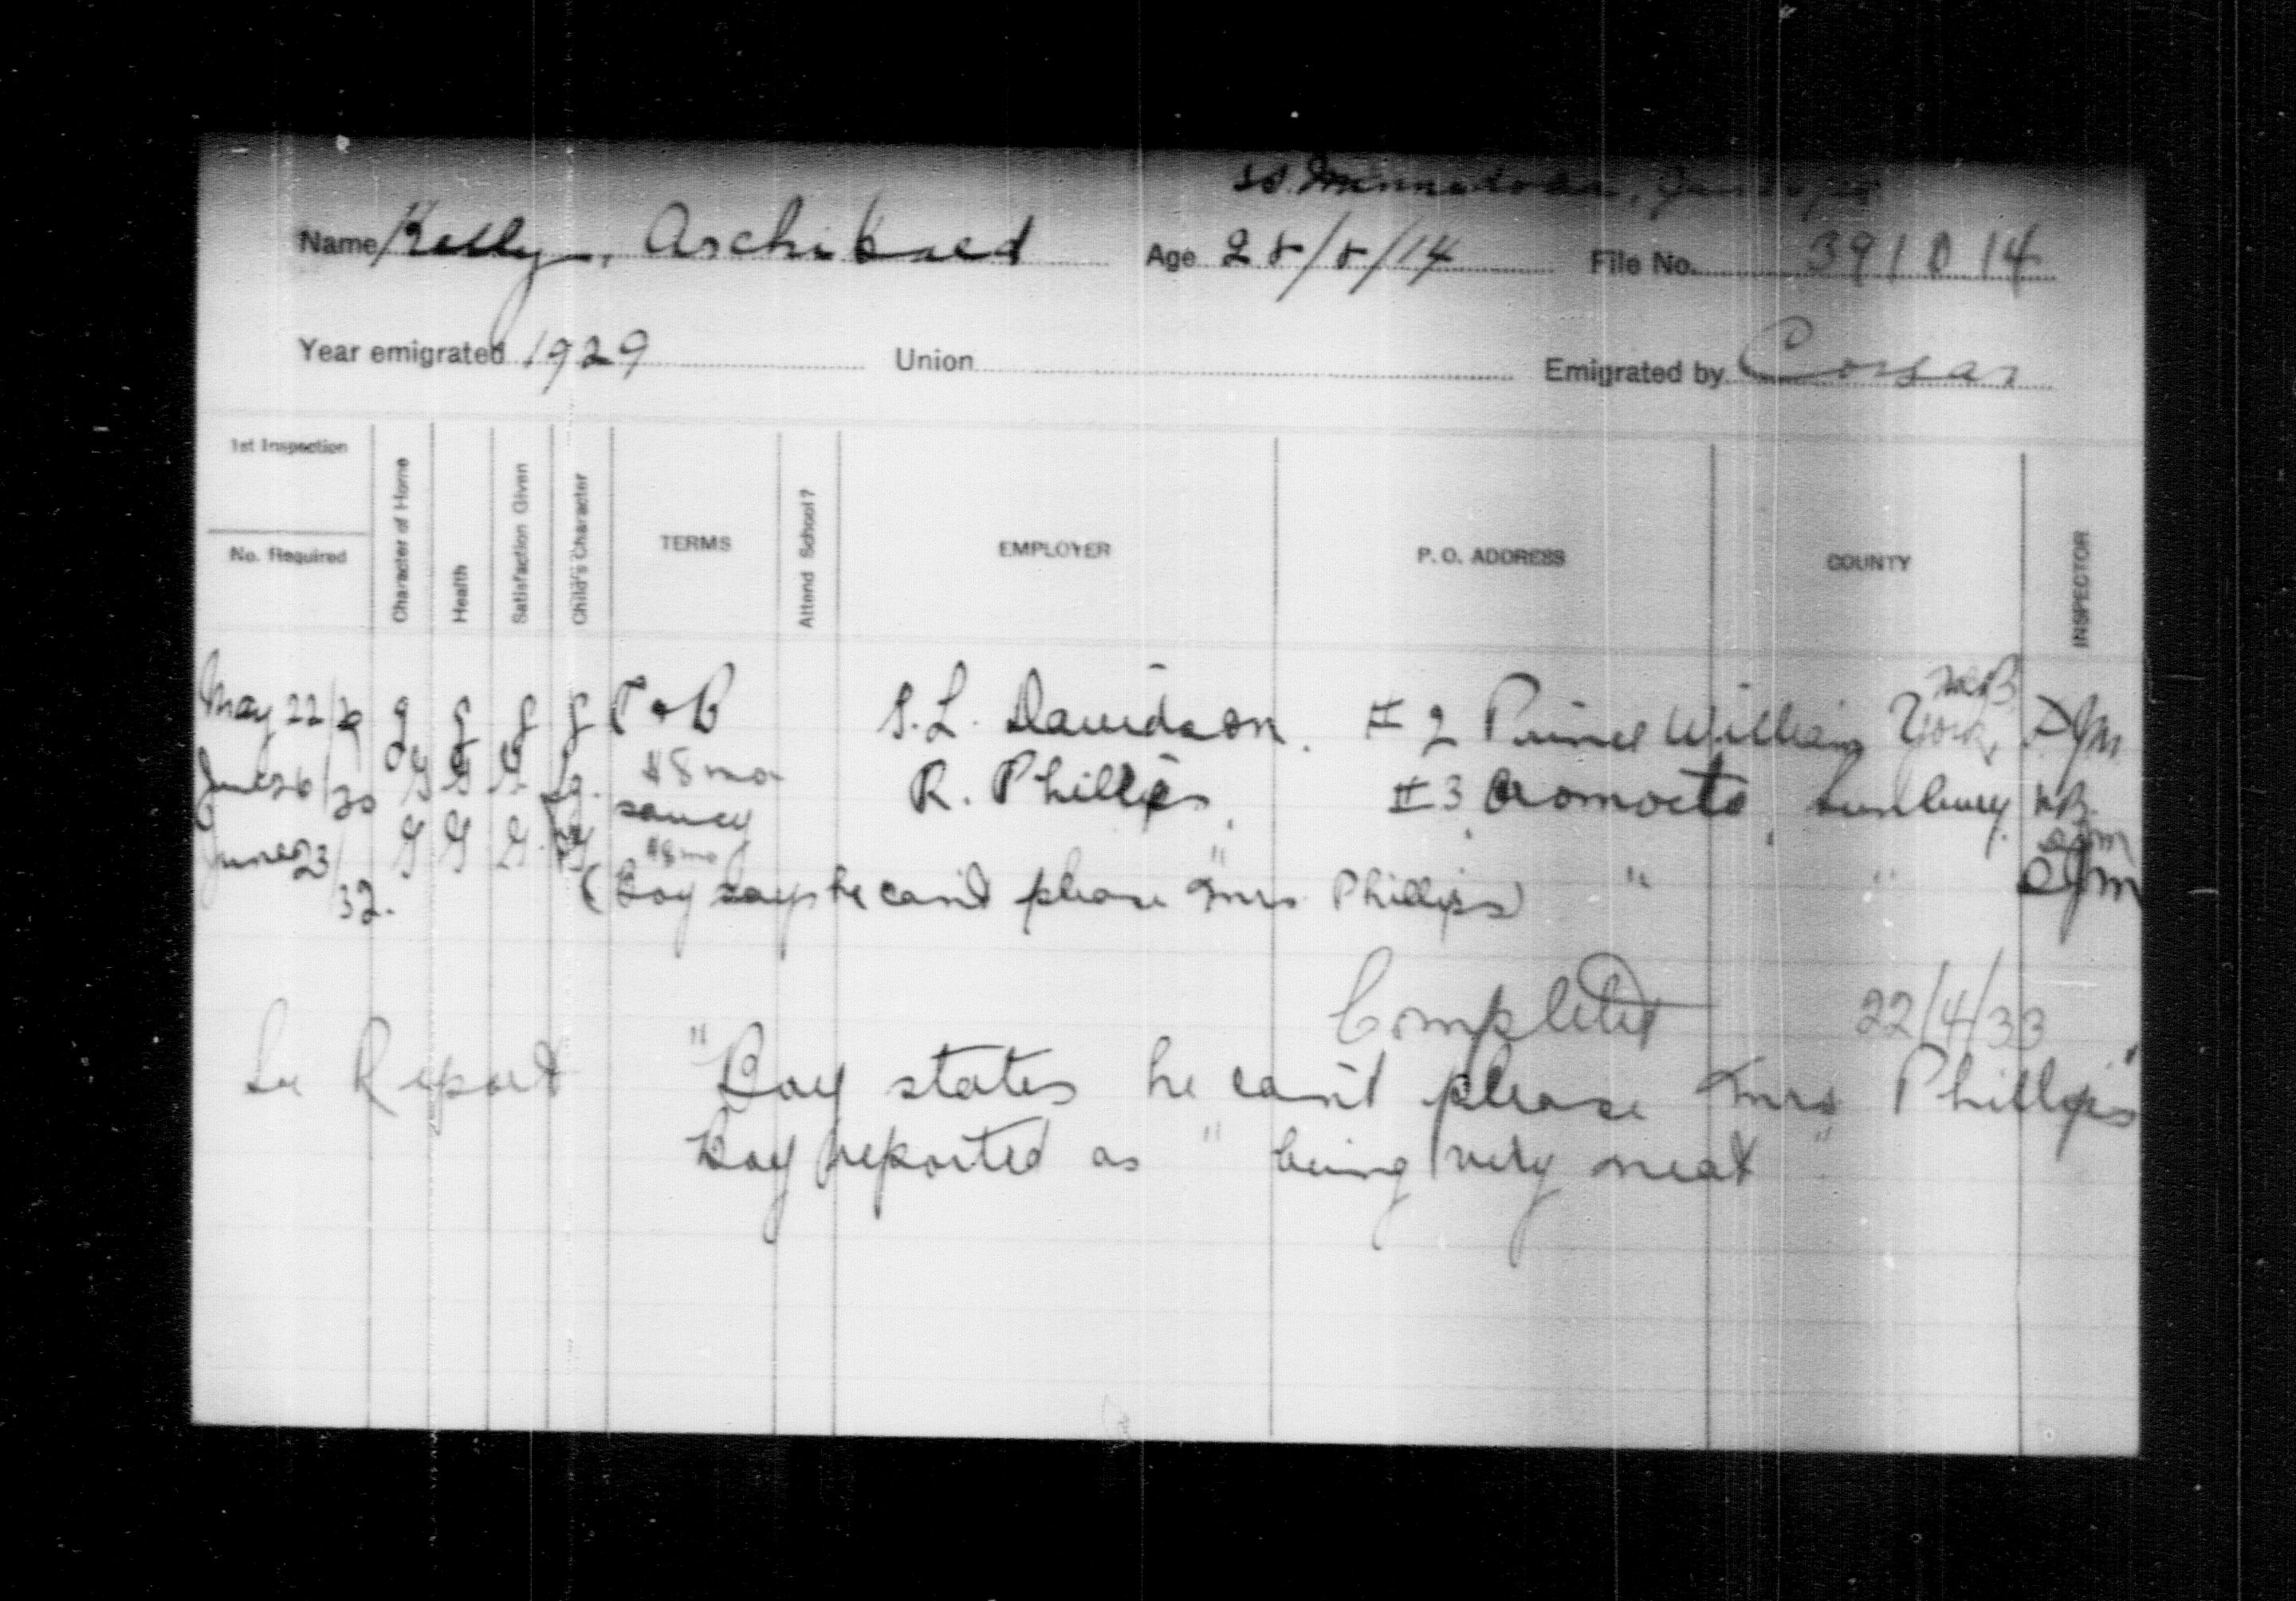 SS. Minnedosa,
Name Kelly, Archibald Age 28/8/14 File No. 391014
Year emigrated 1929 Union Emigrated by Cossar
1st Inspection
No. Required
Character of Home
Health
Satisfaction Given
Child's Character
TERMS
Attend School?
EMPLOYER
P. O. ADDRESS
COUNTY
INSPECTOR
N.B.
May 22/29 g g g g T & B S. L. Davidson, #2 Prince William York,
June 26/30 G G G $8 mo R. Phillips, #3 Oromocto, Sunbury. N.B.
saucy
June 23/ G G G. $8 mo "
32. (Boy says he can't please Mrs Phillips) " "
Completed 22/4/33
See Report "Boy states he can't please Mrs Phillips"
Boy reported as "being very neat"